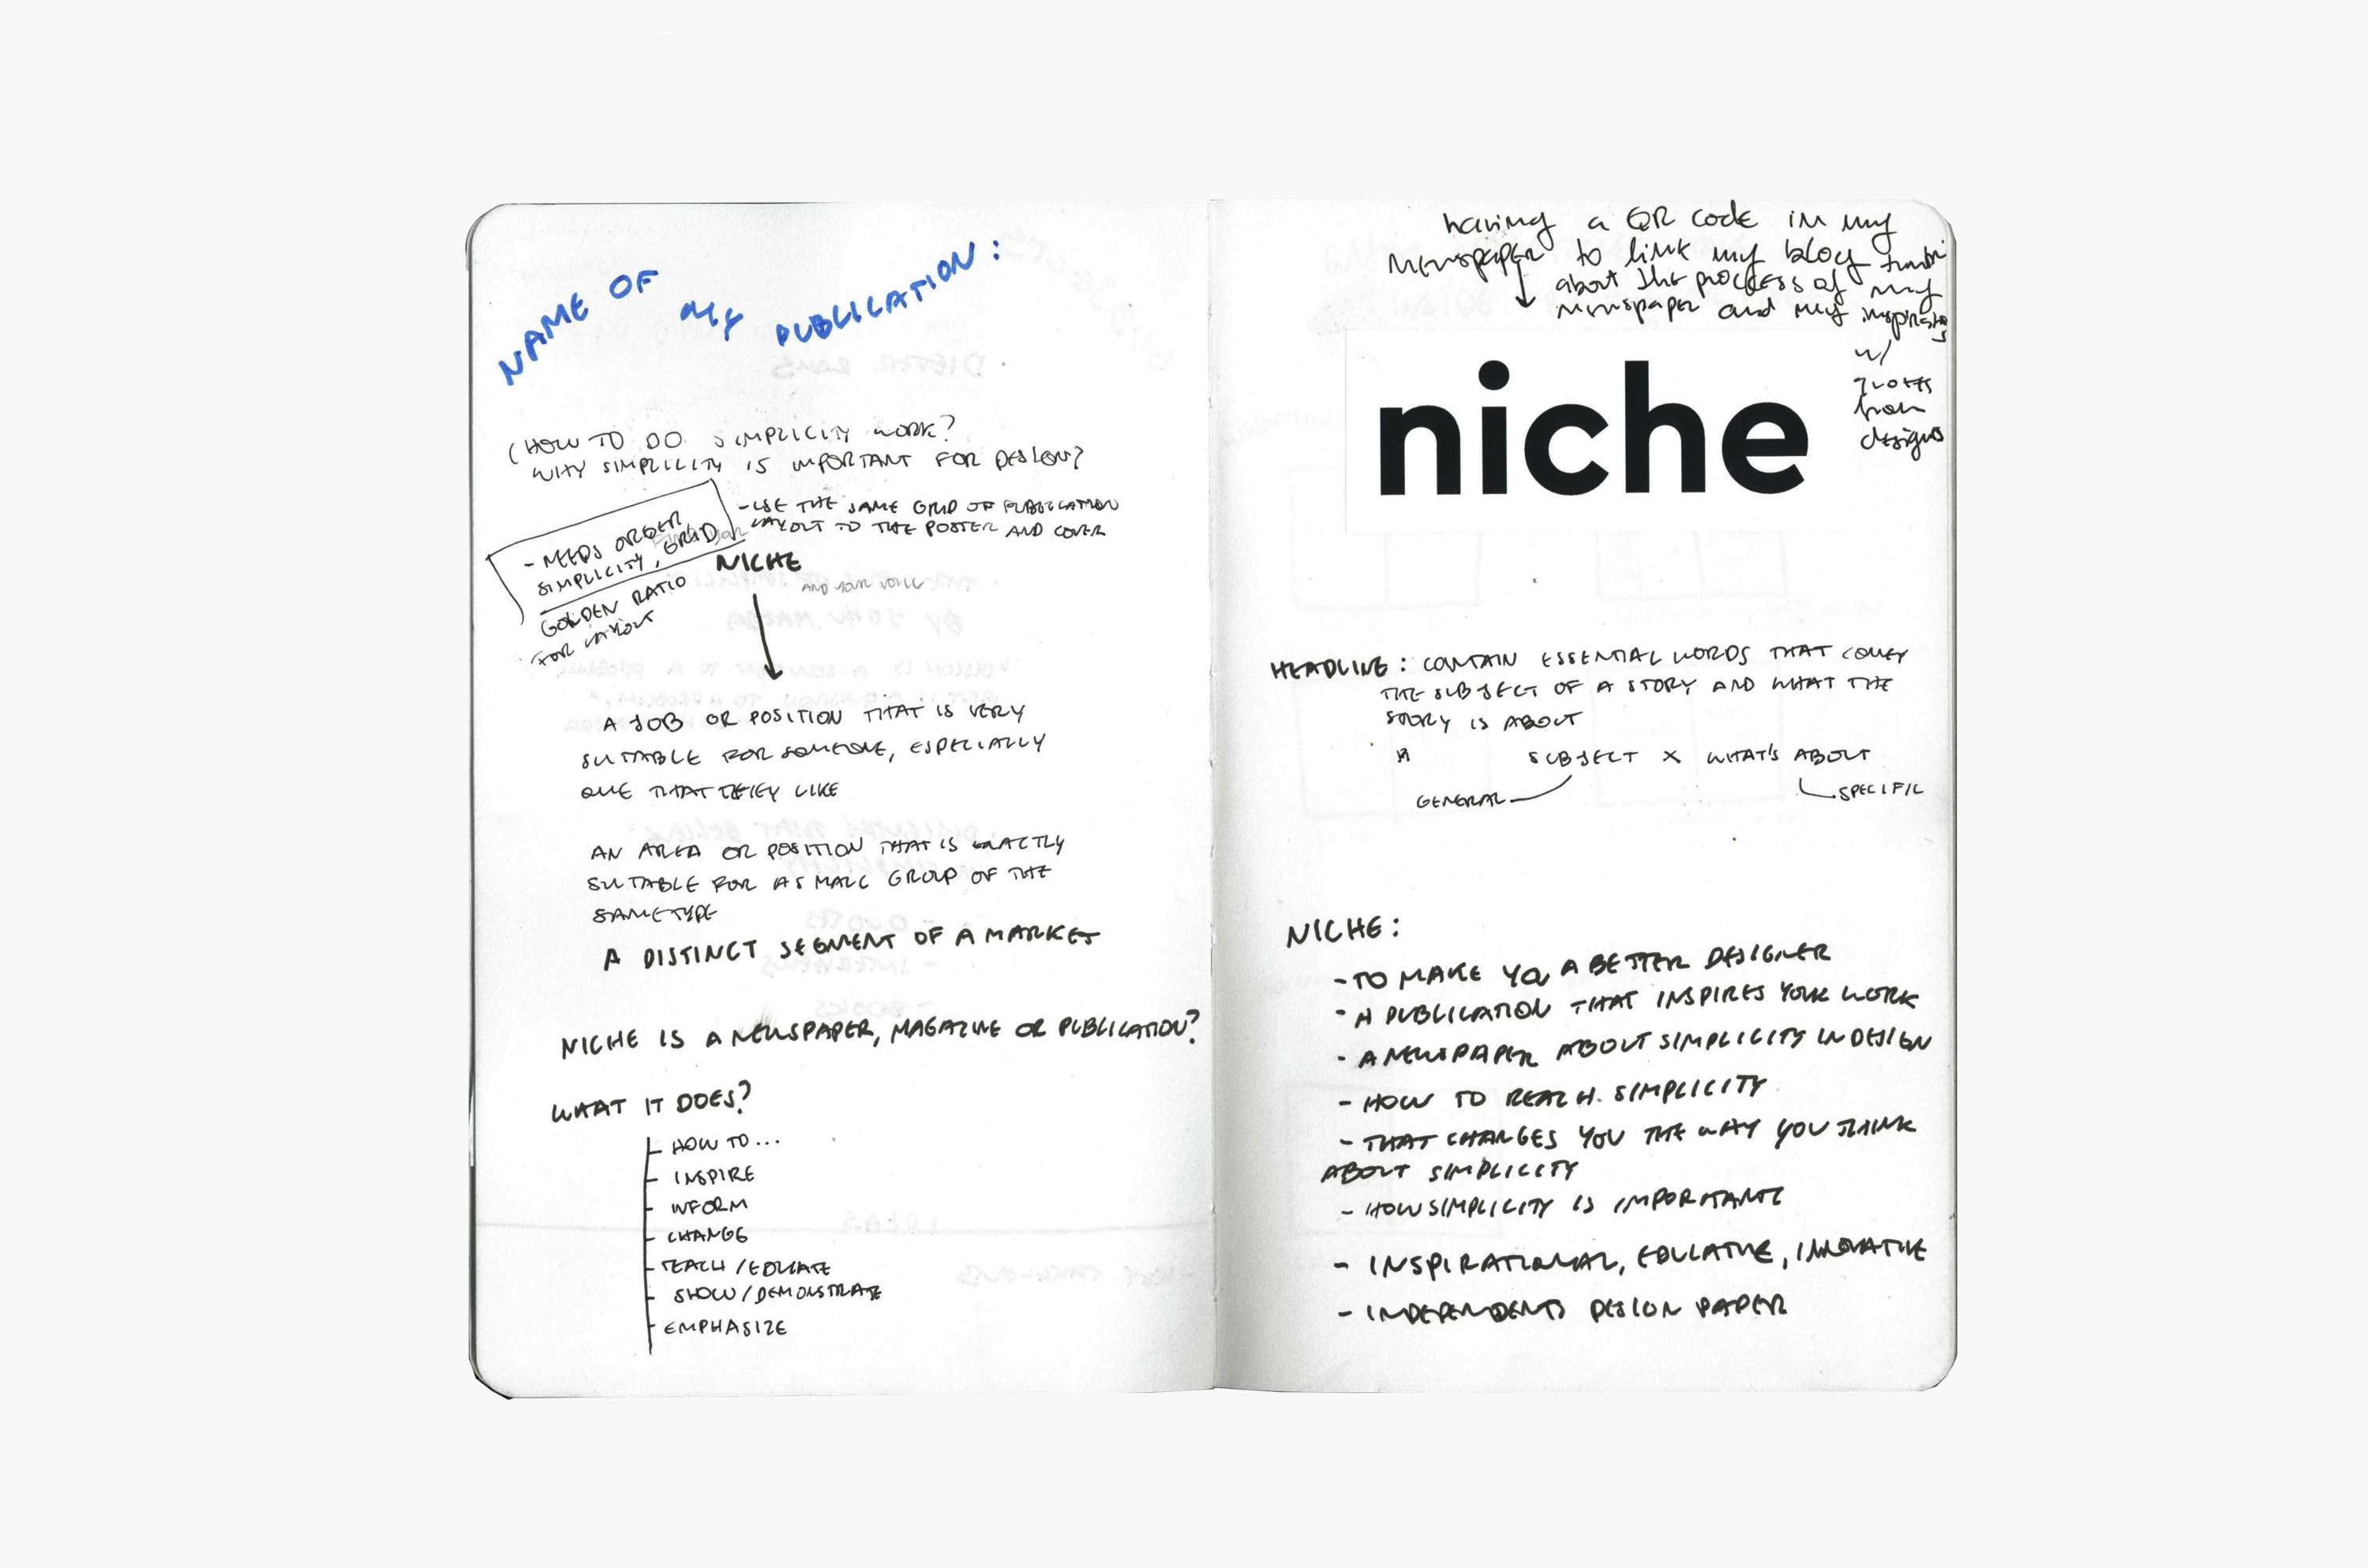 NAME OF MY PUBLICATION:
(HOW TO DO SIMPLICITY WORK?
WHY SIMPLICITY IS IMPORTANT FOR DESIGN?
- NEEDS ORDER
SIMPLICITY, GRID
GOLDEN RATIO
FOR LAYOUT
- USE THE SAME GRID OF PUBLICATION
LAYOUT TO THE POSTER AND COVER
NICHE
AND YOUR VOICE
A JOB OR POSITION THAT IS VERY
SUITABLE FOR SOMEONE, ESPECIALLY
ONE THAT THEY LIKE
AN AREA OR POSITION THAT IS EXACTLY
SUITABLE FOR A SMALL GROUP OF THE
SAME TYPE
A DISTINCT SEGMENT OF A MARKET
NICHE IS A NEWSPAPER, MAGAZINE OR PUBLICATION?
WHAT IT DOES?
HOW TO...
INSPIRE
INFORM
CHANGE
TEACH / EDUCATE
SHOW / DEMONSTRATE
EMPHASIZE
having a QR code in my
newspaper to link my blog
about the process of my
newspaper and my
w/
quotes
from
niche
HEADLINE: CONTAIN ESSENTIAL WORDS THAT CONEY
THE SUBJECT OF A STORY AND WHAT THE
STORY IS ABOUT
SUBJECT X WHAT'S ABOUT
GENERAL
SPECIFIC
NICHE:
- TO MAKE YOU A BETTER DESIGNER
- A PUBLICATION THAT INSPIRES YOUR WORK
- A NEWSPAPER ABOUT SIMPLICITY IN DESIGN
- HOW TO REACH SIMPLICITY
- THAT CHANGES YOU THE WAY YOU THINK
ABOUT SIMPLICITY
- HOW SIMPLICITY IS IMPORTANT
- INSPIRATIONAL, EDUCATIVE, INNOVATIVE
- INDEPENDENTS DESIGN PAPER